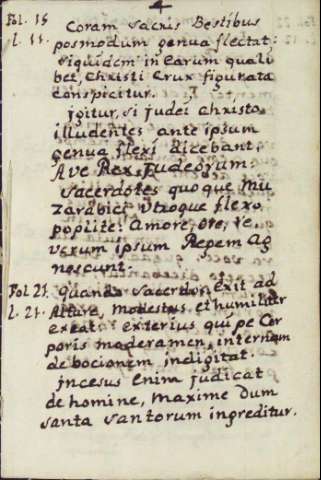 4
Fol. 15
l. 11.
Coram sacris Bestibus
posmodum genua flectat:
siquidem in Earum quali
bet, Christi Crux figurata
conspicitur.
jgitur, si judei Christo
illudentes ante ipsum
genua flexi dicebant,
Ave Rex Judeorum:
sacerdotes quoque Mu
zarabici Utroque flexo
poplite: Amore, ore, re
verum ipsum Regem Ag
noscunt.
Fol 21.
l. 21.
Quando sacerdos Exit ad
Altare, modestus, et humiliter
exeat: exterius, quipe Cor
poris moderamen, internam
debocionem indigitat.
jncesus Enim judicat
de homine, Maxime dum
santa santorum ingreditur.